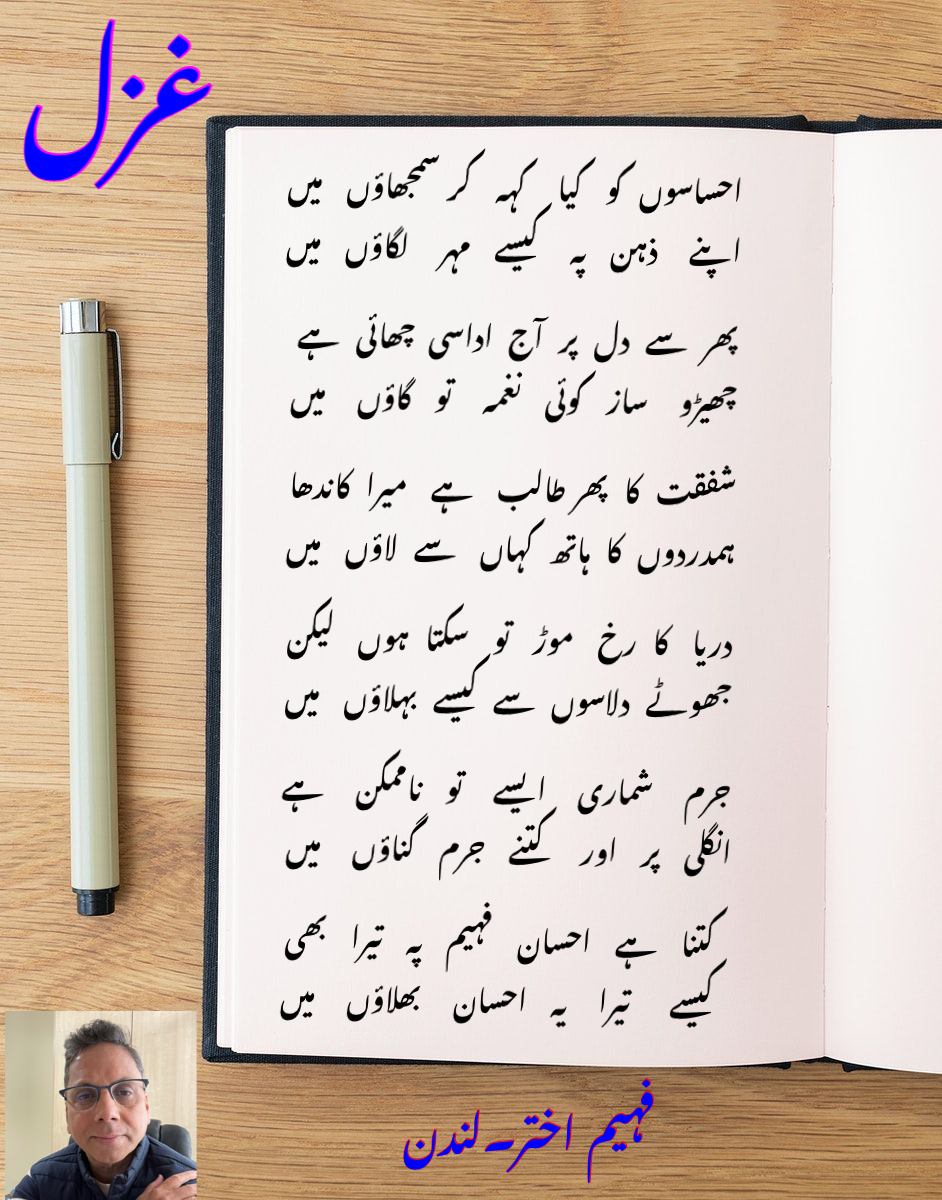 غزل
احساسوں کو کیا کہہ کر سمجھاؤں میں
اپنے ذہن پہ کیسے مہر لگاؤں میں
پھر سے دل پر آج اداسی چھائی ہے
چھیڑو ساز کوئی نغمہ تو گاؤں میں
شفقت کا پھر طالب ہے میرا کاندھا
ہمدردوں کا ہاتھ کہاں سے لاؤں میں
دریا کا رخ موڑ تو سکتا ہوں لیکن
جھوٹے دلاسوں سے کیسے بہلاؤں میں
جرم شماری ایسے تو ناممکن ہے
انگلی پر اور کتنے جرم گناؤں میں
کتنا ہے احسان فہیم پہ تیرا بھی
کیسے تیرا یہ احسان بھلاؤں میں
فہیم اختر۔لندن